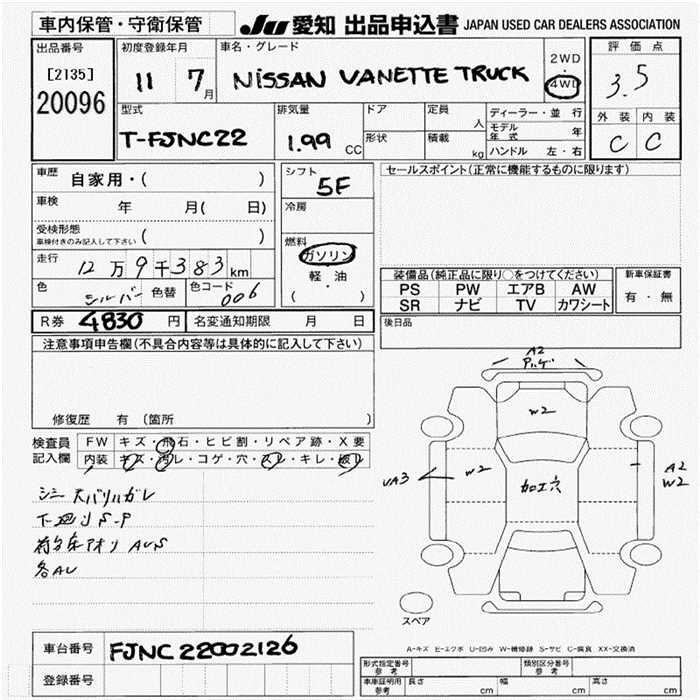 車内保管・守衛保管 JU 愛知 出品申込書 JAPAN USED CAR DEALERS ASSOCIATION
出品番号 初度登録年月 車名・グレード 2WD 評価点
[2135] 11 7月 NISSAN VANETTE TRUCK ・ 3.5
20096 4WD
型式 排気量 ドア 定員 人 ディーラー・並行 外装 内装
T-FJNC22 1.99 CC 形状 積載 kg モデル年式 年 C C
ハンドル 左・右
車歴 自家用・( ) シフト 5F セールスポイント(正常に機能するものに限ります)
車検 年 月( 日) 冷房
受検形態 車検付きのみ記入して下さい ( ) 燃料
走行 12万9千383km ガソリン 装備品(純正品に限り○をつけてください) 新車保証書
色 シルバー 色替 色コード 006 軽・油 PS PW エアB AW 有・無
( ) SR ナビ TV カワシート
R券 4830 円 名変通知期限 月 日 後日品
注意事項申告欄(不具合内容等は具体的に記入して下さい)
A2
W2
修復歴 有 (箇所 )
検査員 FW キズ・飛石・ヒビ割・リペア跡・X要
記入欄 内装 キズ・汚レ・コゲ・穴・スレ・キレ・破レ
W2 A2
UA3 加工穴 W2
下廻りS-P
各AU
スペア
A-キズ E-エクボ U-凹み W-補修跡 S-サビ C-腐食 XX-交換済
車台番号 FJNC22002126
登録番号
形式指定番号 参考 類別区分番号 参考
車庫証明用 参考 長さ cm 幅 cm 高さ cm